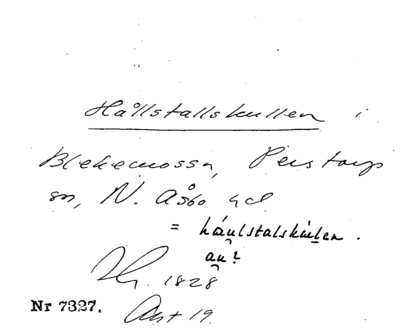 Hållstallskullen i
Blekemossa, Perstorps
sn, N. Åsbo hd
= háu̯lstalskùlen.
au̯?
1828
Nr 7327.
19